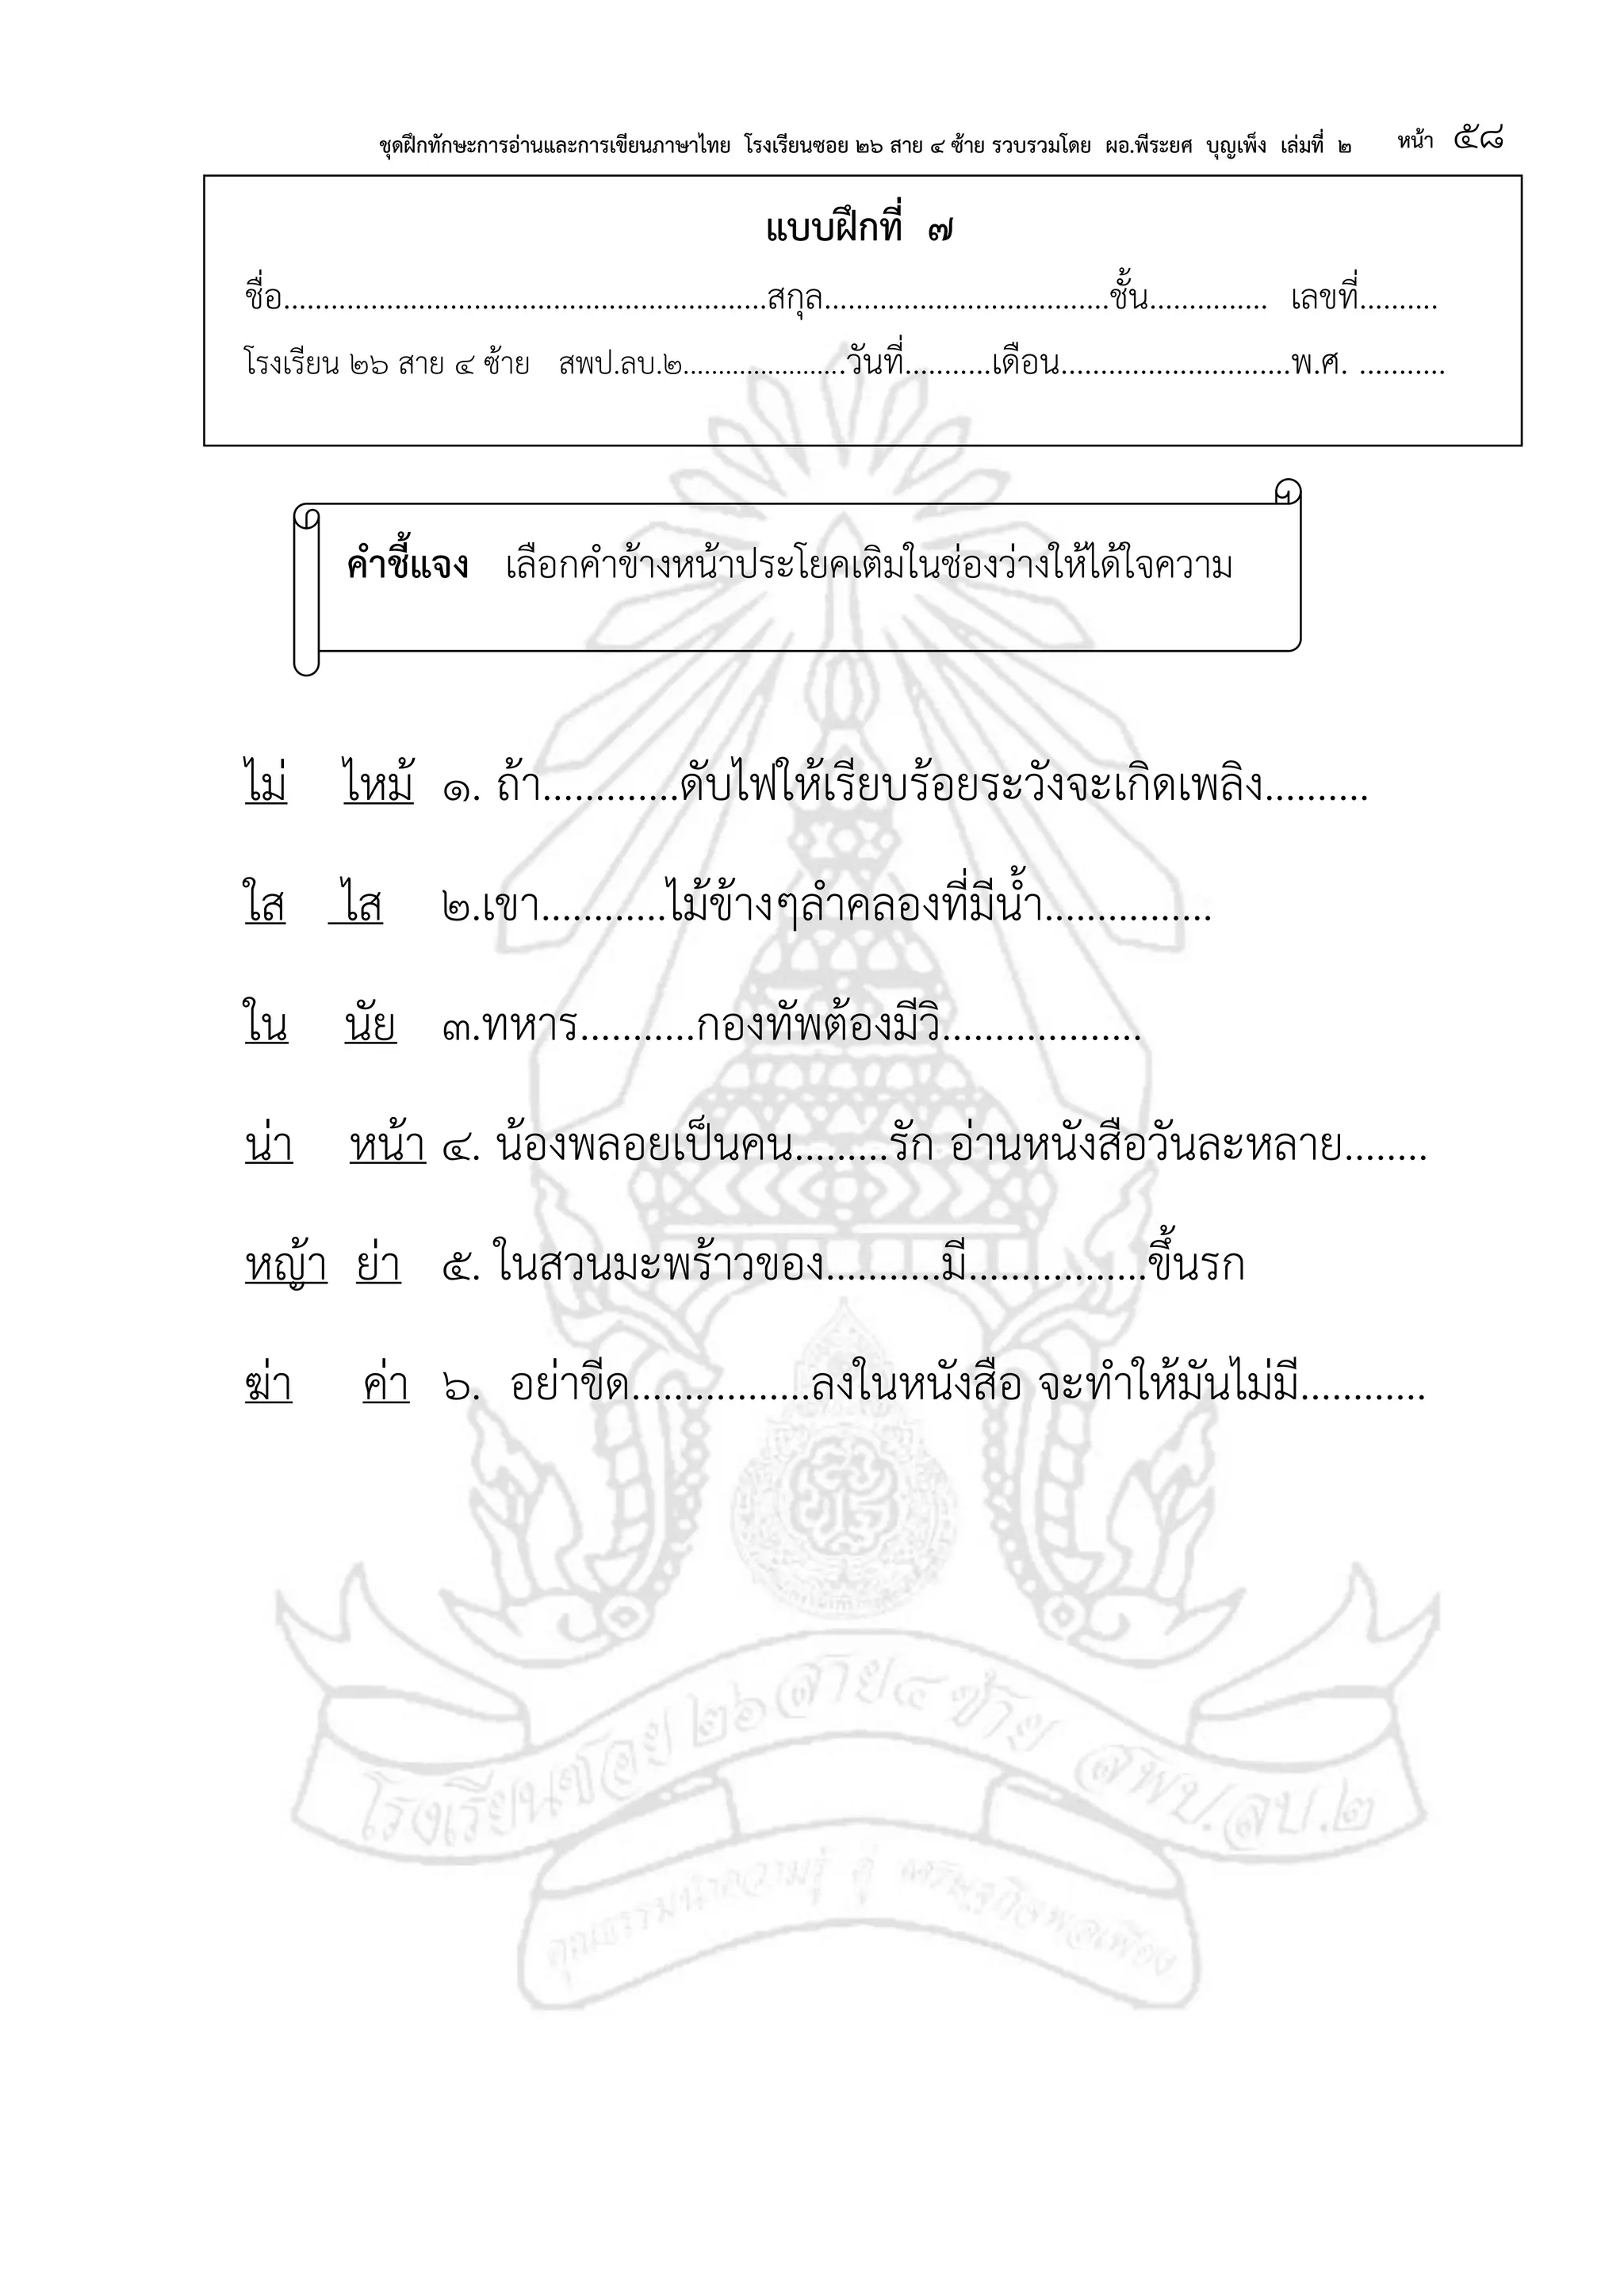 ชุดฝึกทักษะการอ่านและการเขียนภาษาไทย โรงเรียนซอย ๒๖ สาย ๔ ซ้าย รวบรวมโดย ผอ.พีระยศ บุญเพ็ง เล่มที่ ๒ หน้า ๕๘
แบบฝึกที่ ๗
ชื่อ.............................................................สกุล....................................ชั้น............... เลขที่..........
โรงเรียน ๒๖ สาย ๔ ซ้าย สพป.ลบ.๒.......................วันที่...........เดือน.............................พ.ศ. ...........
คำชี้แจง เลือกคำข้างหน้าประโยคเติมในช่องว่างให้ได้ใจความ
ไม่ ไหม้ ๑. ถ้า.............ดับไฟให้เรียบร้อยระวังจะเกิดเพลิง..........
ใส ไส ๒.เขา............ไม้ข้างๆลำคลองที่มีน้ำ................
ใน นัย ๓.ทหาร...........กองทัพต้องมีวิ...................
น่า หน้า ๔. น้องพลอยเป็นคน.........รัก อ่านหนังสือวันละหลาย........
หญ้า ย่า ๕. ในสวนมะพร้าวของ...........มี.................ขึ้นรก
ฆ่า ค่า ๖. อย่าขีด.................ลงในหนังสือ จะทำให้มันไม่มี............
โรงเรียนซอย ๒๖ สาย ๔ ซ้าย สพป.ลบ.๒
คุณธรรมนำความรู้ คู่ เศรษฐกิจพอเพียง